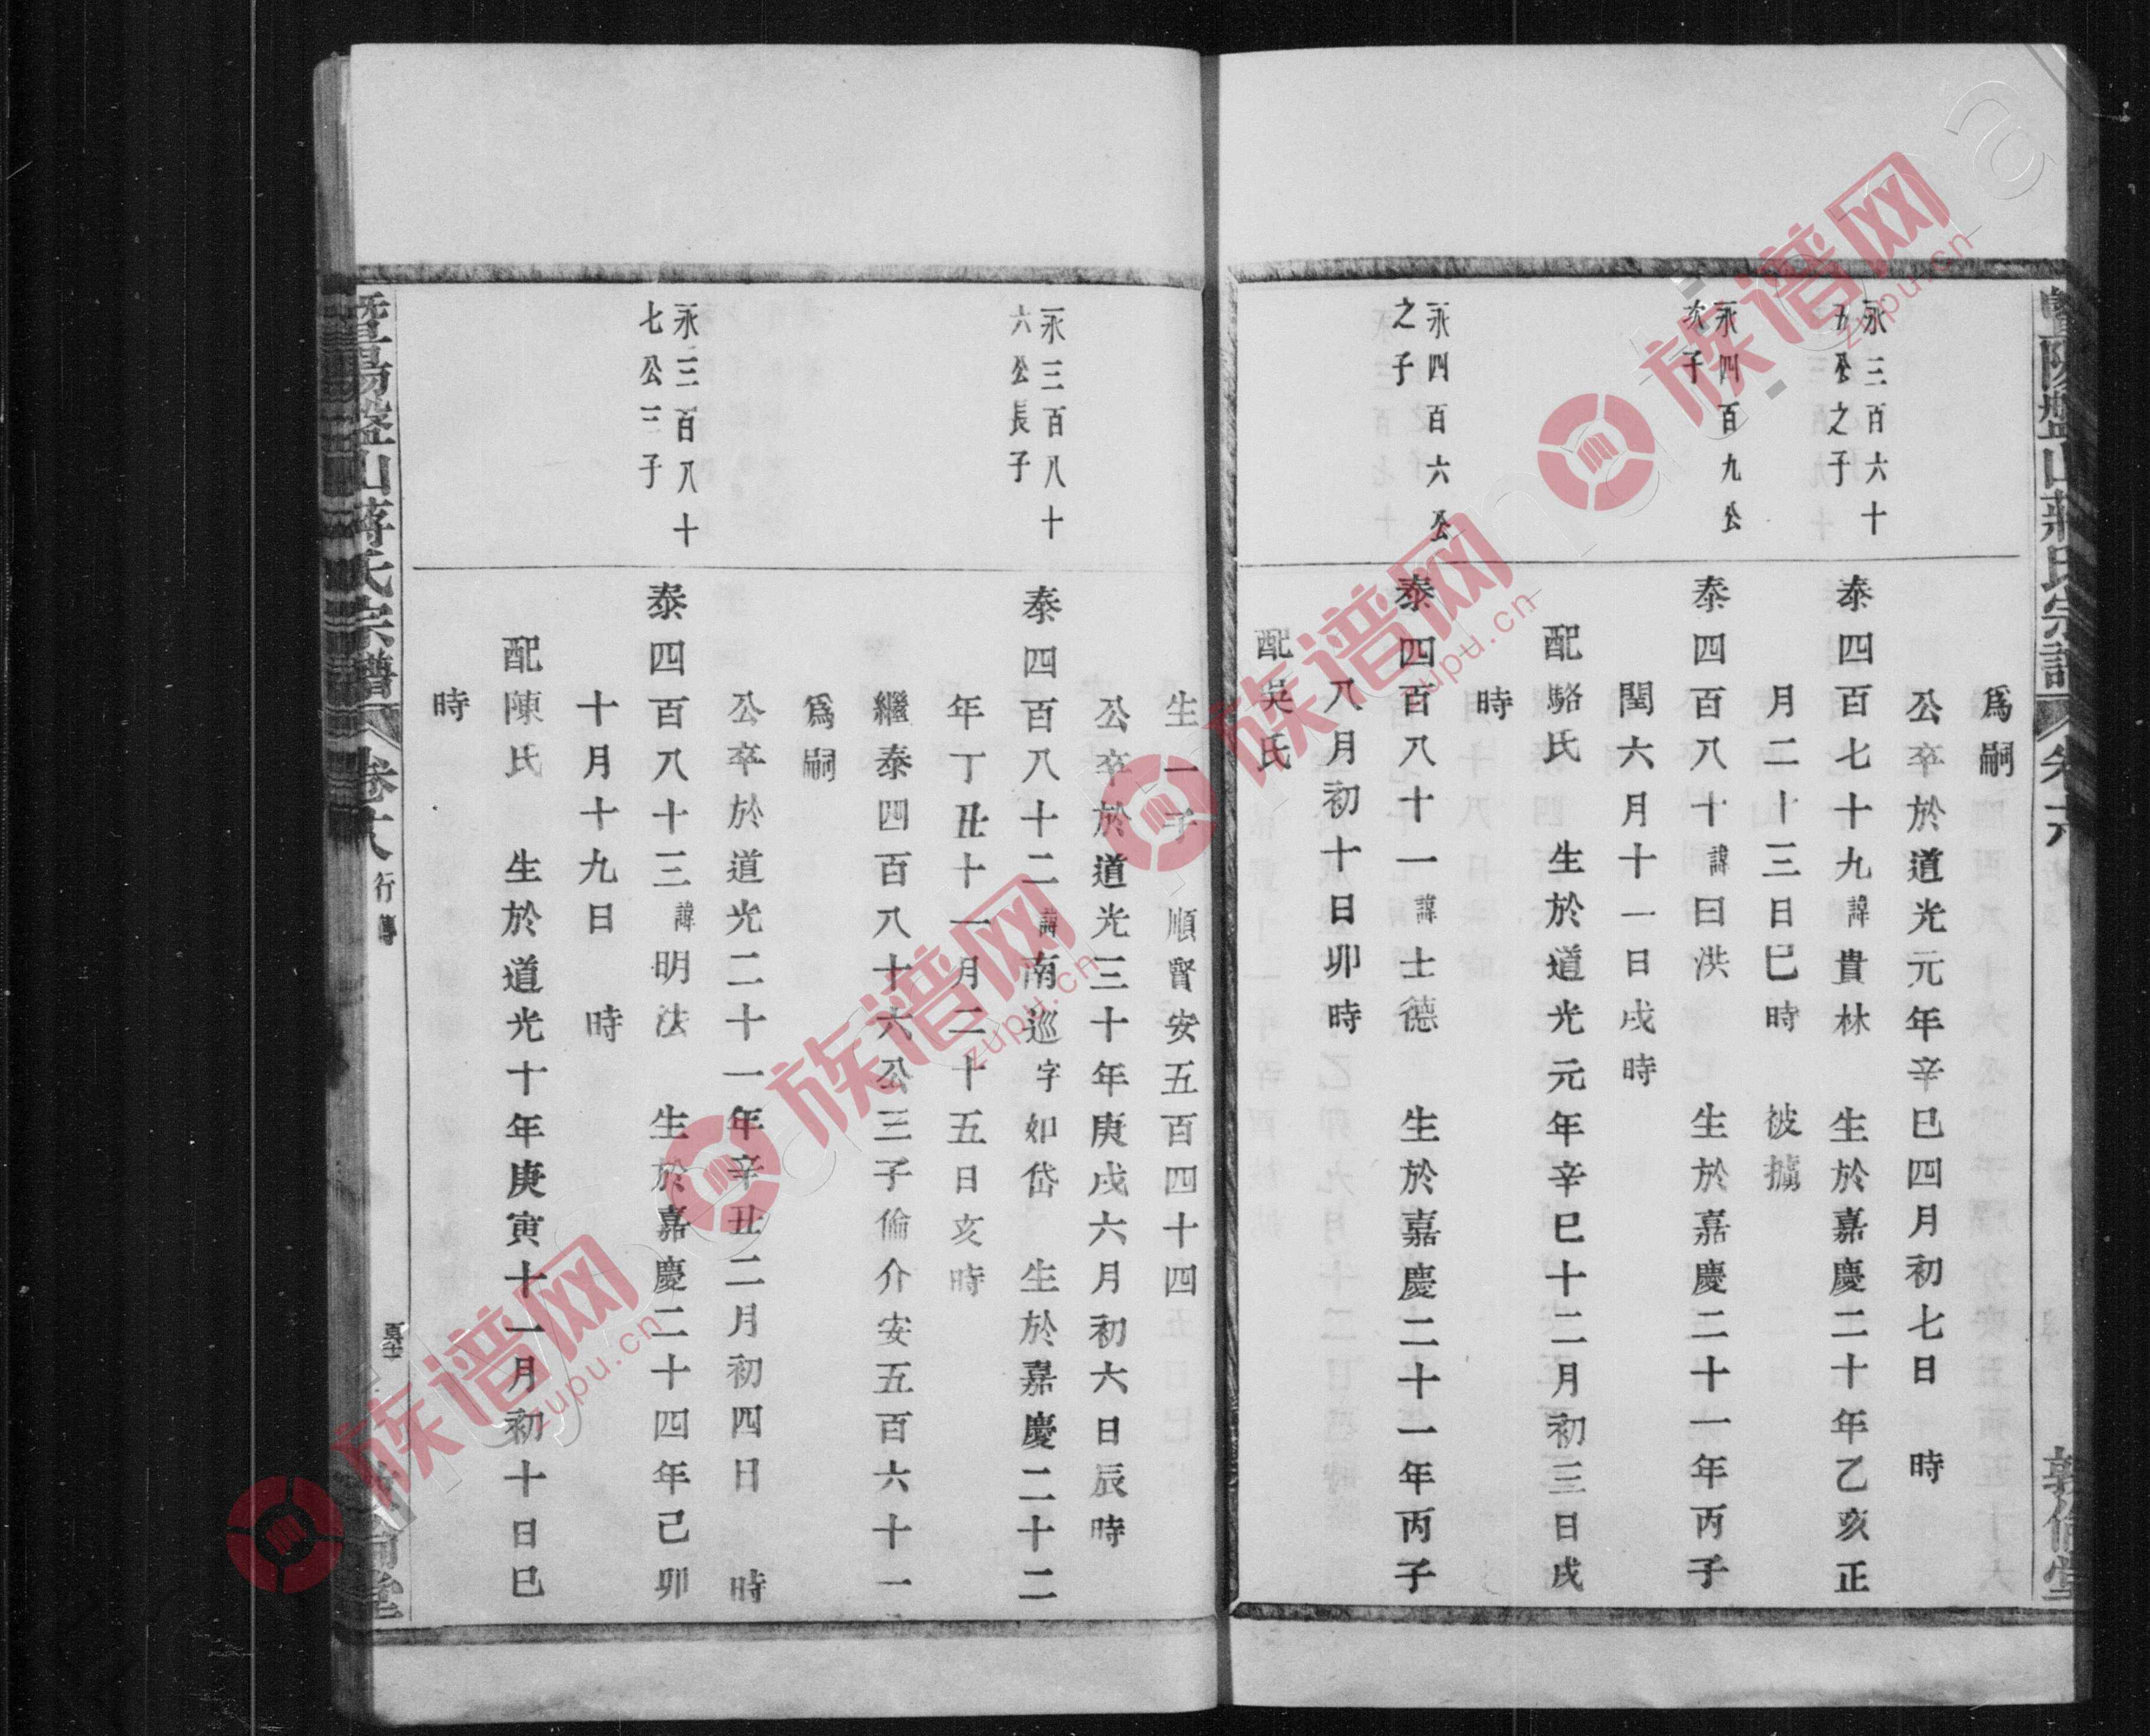 為嗣
公卒於道光元年辛巳四月初七日　時
永三百六十
五公之子
泰四百七十九諱貴林　生於嘉慶二十年乙亥正
月二十三日巳時　被擄
永四百九公
次子
泰四百八十諱曰洪　生於嘉慶二十一年丙子
閏六月十一日戌時
配駱氏　生於道光元年辛巳十二月初三日戌
時
永四百六公
之子
泰四百八十一諱士德　生於嘉慶二十一年丙子
八月初十日卯時
配吳氏
生一子　順賢安五百四十四
公卒於道光三十年庚戌六月初六日辰時
永三百八十
六公長子
泰四百八十二諱南巡字如岱　生於嘉慶二十二
年丁丑十一月二十五日亥時
繼泰四百八十六公三子倫介安五百六十一
為嗣
公卒於道光二十一年辛丑二月初四日　時
永三百八十
七公三子
泰四百八十三諱明法　生於嘉慶二十四年己卯
十月十九日　時
配陳氏　生於道光十年庚寅十一月初十日巳
時
暨陽盤山蔣氏宗譜
行傳
敦倫堂
族谱网
zupu.cn